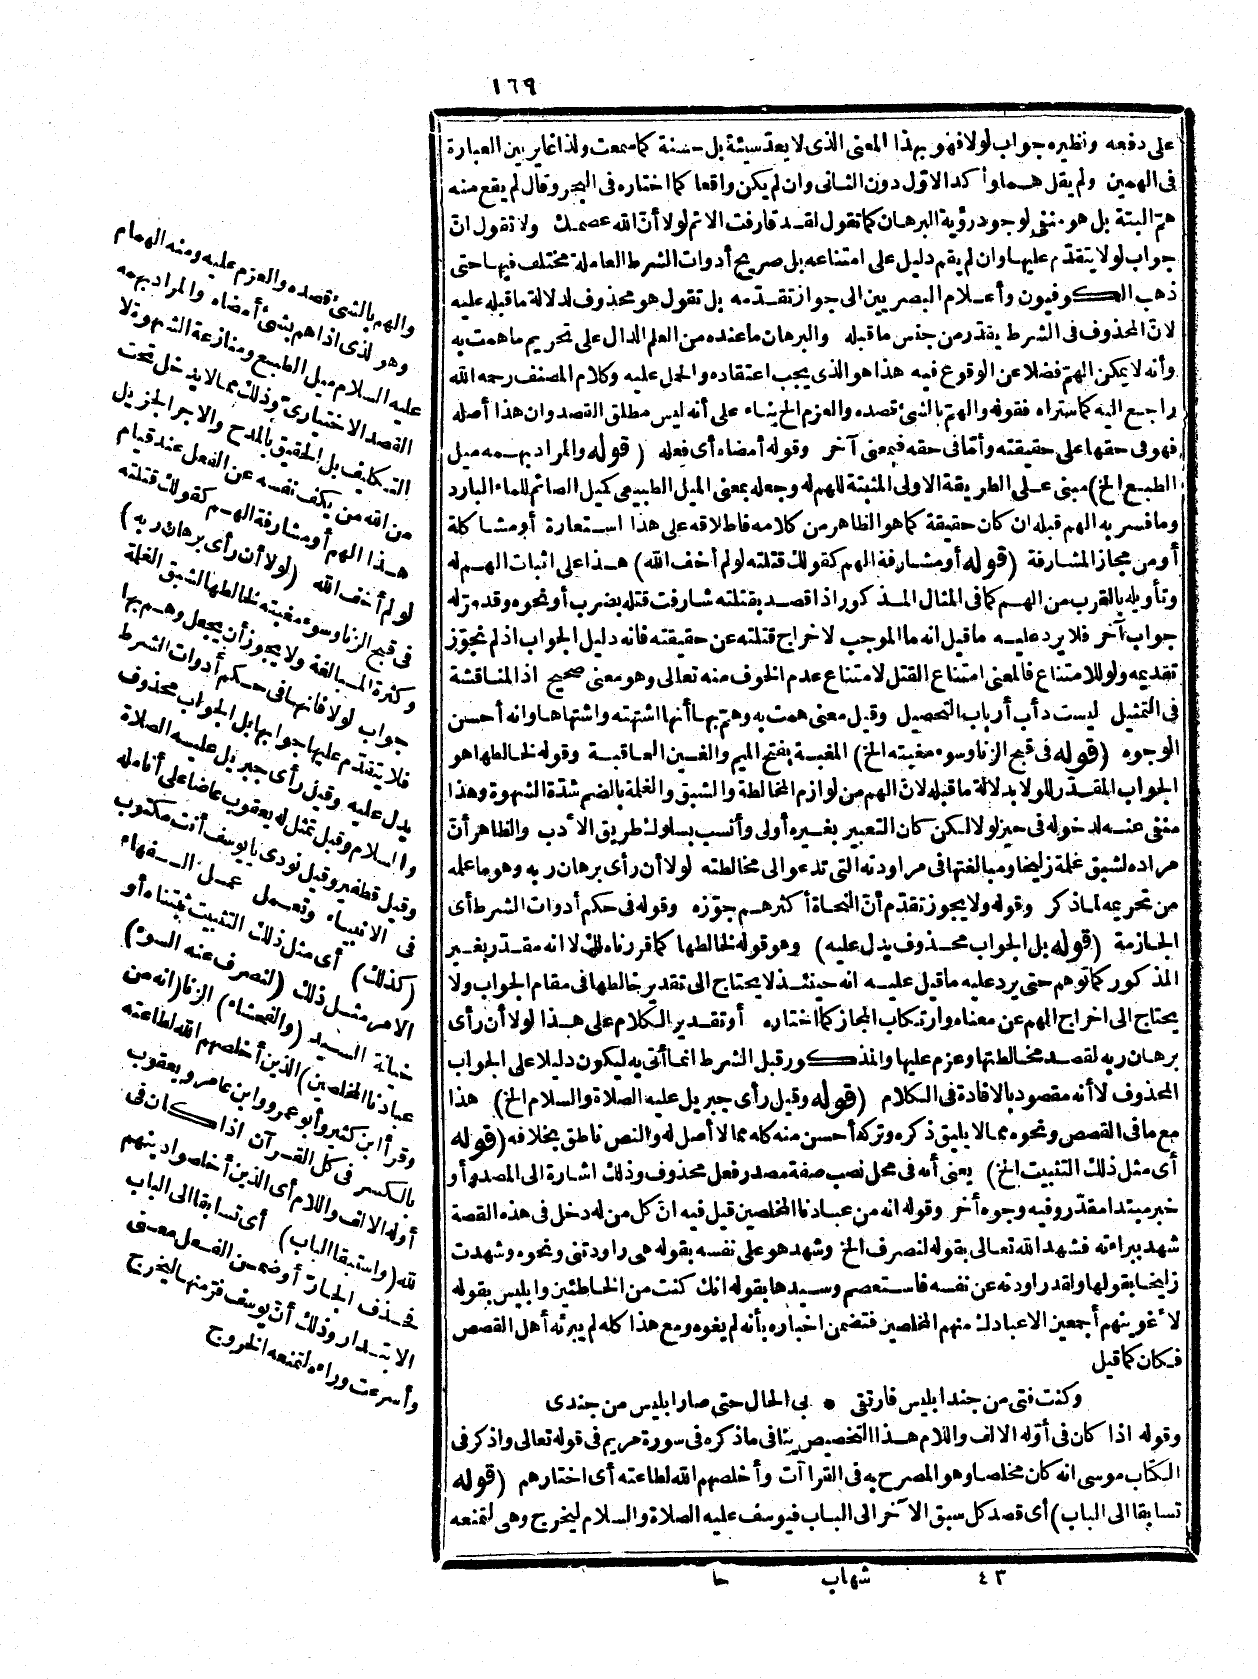 ١٦٩
على دفعه ونظيره جواب لولا فهو بهذا المعنى الذى لا يعد سيئة بل حسنة كما سمعت ولذا غاير بين العبارة
فى الهمين ولم يقل هما وأكد الاوّل دون الثانى وان لم يكن واقعا كما اختاره فى البحر وقال لم يقع منه
همّ البتة بل هو منفى لوجود رؤية البرهان كما تقول لقد قارفت الاثم لولا أنّ الله عصمك ولا تقول انّ
جواب لولا يتقدّم عليها وان لم يقم دليل على امتناعه بل صريح أدوات الشرط العاملة مختلف فيها حتى
ذهب الكوفيون وأعلام البصريين الى جواز تقدمه بل تقول هو محذوف لدلالة ما قبله عليه
لانّ المحذوف فى الشرط يقدر من جنس ما قبله والبرهان ما عنده من العلم الدال على تحريم ما همت به
وأنه لا يمكن الهمّ فضلا عن الوقوع فيه هذا هو الذى يجب اعتقاده والحمل عليه وكلام المصنف رحمه الله
راجع اليه كما ستراه فقوله والهمّ بالشئ قصده والعزم الخ بناء على أنه ليس مطلق القصد وان هذا أصله
فهو فى حقها على حقيقته وأمّا فى حقه فبمعنى آخر وقوله أمضاه أى فعله (قوله والمراد بهمه ميل
الطبع الخ) مبنى على الطريقة الاولى المثبتة للهم له وجعله بمعنى الميل الطبيعى كميل الصائم للماء البارد
وما فسر به الهم قبله ان كان حقيقة كما هو الظاهر من كلامه فاطلاقه على هذا استعارة أو مشاكلة
أو من مجاز المشارفة (قوله أو مشارفة الهم كقولك قتلته لو لم أخف الله) هذا على اثبات الهم له
وتأويله بالقرب من الهم كما فى المثال المذكور اذا قصد بقتلته شارفت قتله بضرب أو نحوه وقد مر له
جواب آخر فلا يرد عليه ما قيل انه ما الموجب لاخراج قتلته عن حقيقته فانه دليل الجواب اذ لم نجوّز
تقديمه ولو للامتناع فالمعنى امتناع القتل لامتناع عدم الخوف منه تعالى وهو معنى صحيح اذ المناقشة
فى التمثيل ليست دأب أرباب التحصيل وقيل معنى همت به وهمّ بها أنها اشتهته واشتهاها وانه أحسن
الوجوه (قوله فى قبح الزنا وسوء مغبته الخ) المغبة بفتح الميم والغين العاقبة وقوله لخالطها هو
الجواب المقدّر للولا بدلالة ما قبله لانّ الهم من لوازم المخالطة والشبق والغلة بالضم شدّة الشهوة وهذا
منفى عنه لدخوله فى حيز لولا لكن كان التعبير بغيره أولى وأنسب بسلوك طريق الأدب والظاهر أنّ
مراده لشبق غلمة زليخا ومبالغتها فى مراودته التى تدعو الى مخالطته لولا أن رأى برهان ربه وهو ما علمه
من تحريمه لما ذكر وقوله ولا يجوز تقدّم أنّ النحاة أكثرهم جوّزه وقوله فى حكم أدوات الشرط أى
الجازمة (قوله بل الجواب محذوف يدل عليه) وهو قوله لخالطها كما قررناه لك لا انه مقدّر بغير
المذكور كما توهم حتى يرد عليه ما قيل عليه انه حينئذ لا يحتاج الى تقدير خالطها فى مقام الجواب ولا
يحتاج الى اخراج الهم عن معناه وارتكاب المجاز كما اختاره أو تقدير الكلام على هذا لولا أن رأى
برهان ربه لقصد مخالطتها وعزم عليها والمذكور قبل الشرط انما أتى به ليكون دليلا على الجواب
المحذوف لا أنه مقصود بالافادة فى الكلام (قوله وقيل رأى جبريل عليه الصلاة والسلام الخ) هذا
مع ما فى القصص ونحوه مما لا يليق ذكره وتركه أحسن منه كله مما لا أصل له والنص ناطق بخلافه (قوله
أى مثل ذلك التثبيت الخ) يعنى أنه فى محل نصب صفة مصدر فعل محذوف وذلك اشارة الى المصدر أو
خبر مبتدا مقدّر وفيه وجوه أخر وقوله انه من عبادنا المخلصين قيل فيه انّ كل من له دخل فى هذه القصة
شهد ببراءته فشهد الله تعالى بقوله لنصرف الخ وشهد هو على نفسه بقوله هى راودتنى ونحوه وشهدت
زليخا بقولها ولقد راودته عن نفسه فاستعصم وسيدها بقوله انك كنت من الخاطئين وابليس بقوله
لأغوينهم أجمعين الا عبادك منهم المخلصين فتضمن اخباره بأنه لم يغوه ومع هذا كله لم يبرئه أهل القصص
فكان كما قيل
وكنت فتى من جند ابليس فارتقى • بى الحال حتى صار ابليس من جندى
وقوله اذا كان فى أوّله الالف واللام هذا التخصيص ينافى ما ذكره فى سورة مريم فى قوله تعالى واذكر فى
الكتاب موسى انه كان مخلصا وهو المصرح به فى القراآت وأخلصهم الله لطاعته أى اختارهم (قوله
تسابقا الى الباب) أى قصد كل سبق الآخر الى الباب فيوسف عليه الصلاة والسلام ليخرج وهى لتمنعه
والهم بالشئ قصده والعزم عليه ومنه الهمام
وهو لذى اذا هم بشئ أمضاه والمراد بهمه
عليه السلام ميل الطبع ومنازعة الشهوة لا
القصد الاختيارى وذلك مما لا يدخل تحت
التكليف بل الحقيق بالمدح والاجر الجزيل
من الله من يكف نفسه عن الفعل عند قيام
هذا الهم أو مشارفة الهم كقولك قتلته
لو لم أخف الله (لولا أن رأى برهان ربه)
فى قبح الزنا وسوء مغبته لخالطها لشبق الغلة
وكثرة المبالغة ولا يجوز أن يجعل وهم بها
جواب لولا فانها فى حكم أدوات الشرط
فلا يتقدّم عليها جوابها بل الجواب محذوف
يدل عليه وقيل رأى جبريل عليه الصلاة
والسلام وقيل تمثل له يعقوب عاضا على أنامله
وقيل قطفير وقيل نودى يا يوسف أنت مكتوب
فى الانبياء وتعمل عمل السفهاء
(كذلك) أى مثل ذلك التثبيت ثبتناه أو
الامر مثل ذلك (لنصرف عنه السوء)
خيانة السيد (والفحشاء) الزنا (انه من
عبادنا المخلصين) الذين أخلصهم الله لطاعته
وقرأ ابن كثير وأبو عمرو وابن عامر ويعقوب
بالكسر فى كل القرآن اذا كان فى
أوله الالف واللام أى الذين أخلصوا دينهم
لله (واستبقا الباب) أى تسابقا الى الباب
فحذف الجارّ أو ضمن الفعل معنى
الابتدار وذلك أنّ يوسف فرّ منها ليخرج
وأسرعت وراءه لتمنعه الخروج
٤٣ شهاب خا